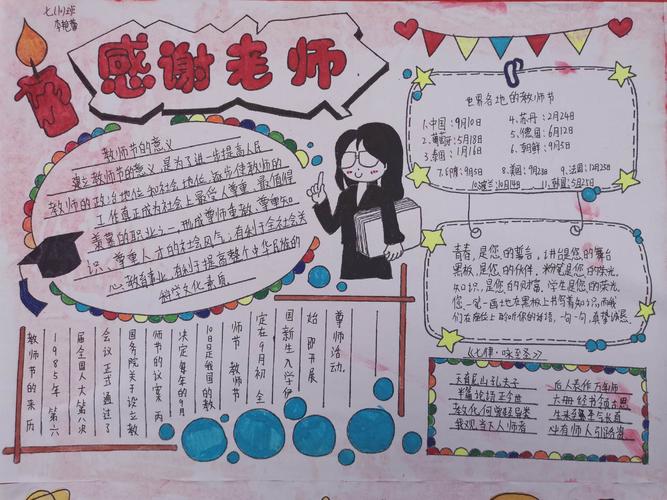 七(10)班
感谢老师
教师节的意义
建立教师节的意义,是为了进一步提高人民
教师的政治地位和社会地位,逐步使教师的
工作真正成为社会上最受人尊重、最值得
羡慕的职业之一,形成尊师重教、尊重知
识、尊重人才的社会风气;有利于全社会关
心教育事业,有利于提高整个中华民族的
科学文化素质
世界各地的教师节
1.中国:9月10日 4.苏丹:2月24日
2.葡萄牙:5月18日 5.德国:6月12日
3.泰国:1月16日 6.朝鲜:9月5日
7.印度:9月5日 8.美国:9月28日 9.法国:12月25日
10.波兰:10月14日 11.韩国:5月25日
青春,是您的舞台,讲台是您的舞台
黑板,是您的伙伴,粉笔是您的荣光
知识,是您的财富,学生是您的荣光.
您一笔一画地在黑板上书写着知识,而我
们在座位上聆听你的话语,一句一句,真挚诚恳.
教师节的来历
1985年第六
届全国人大第九次
会议正式通过了
国务院关于设立教
师节的议案
决定每年的9月
10日是我国的教
师节 教师节
定在9月初 全
国新生入学伊
始即开展
尊师活动.
《七律·咏至圣》
天育尼山孔夫子 后人表作万年师
半篇论语正今世 六册经书领古思
教化何曾轻异类
我观当下人师者